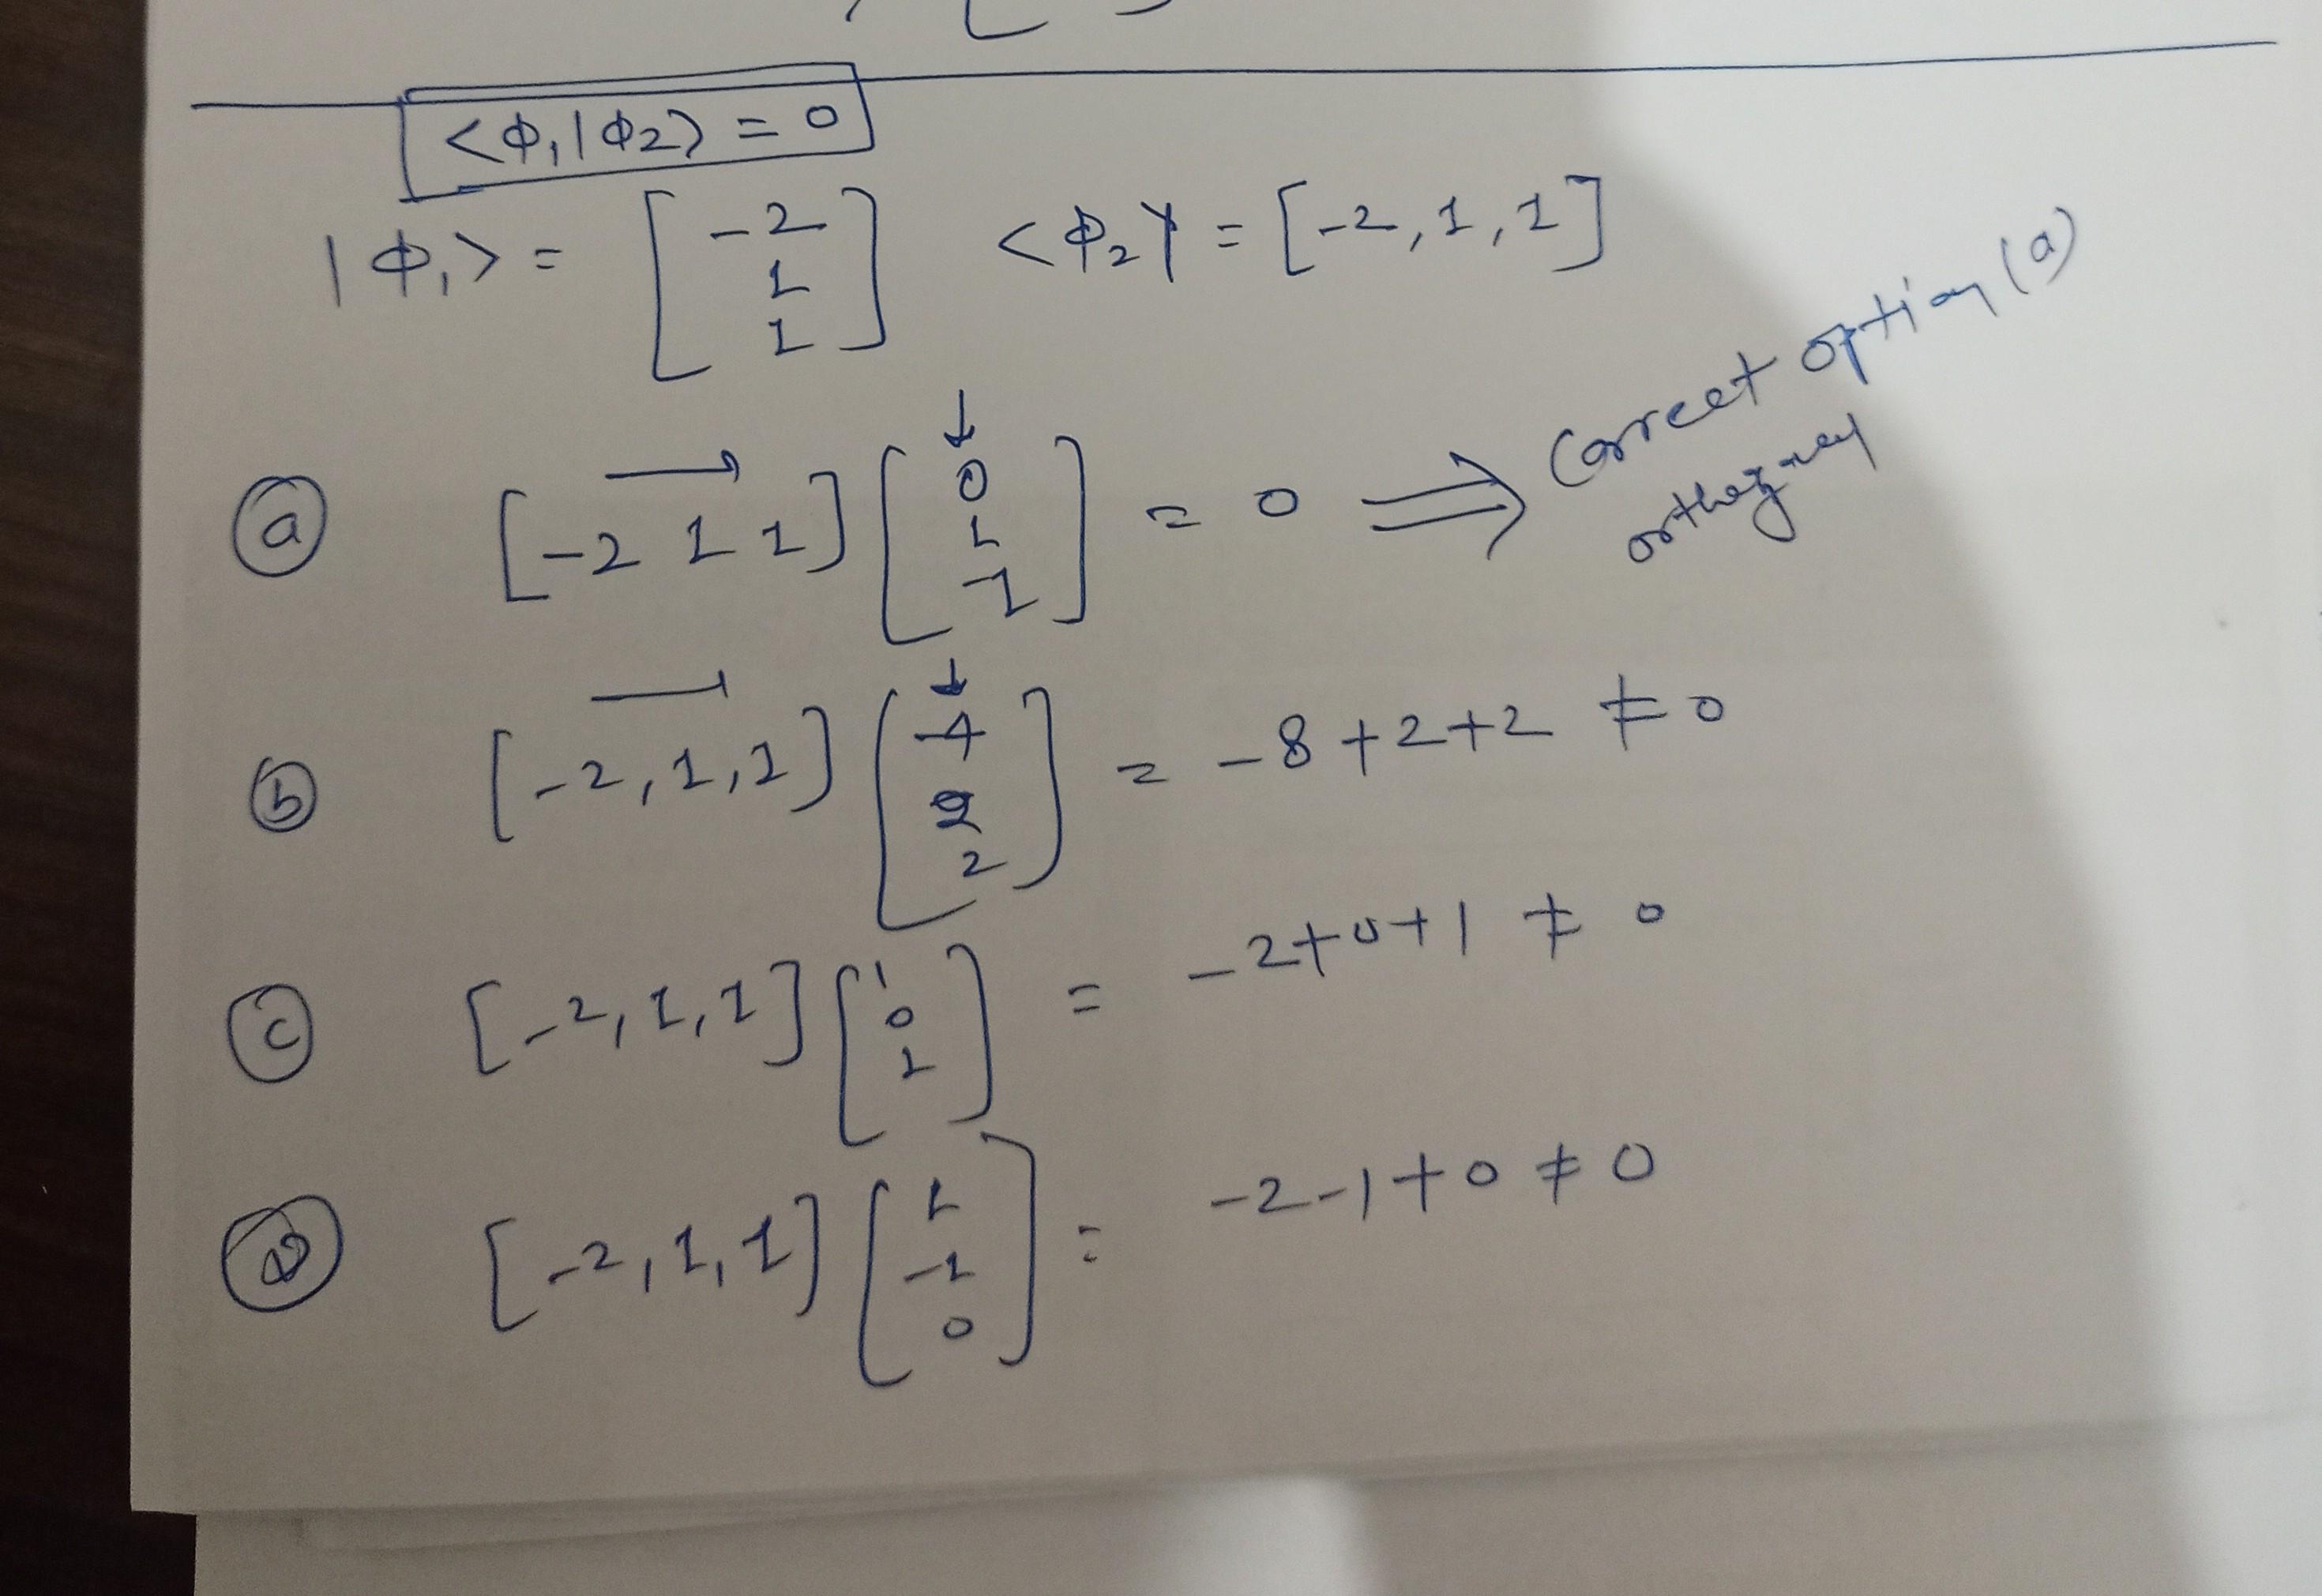 <Φ₁|Φ₂> = 0
|Φ₁> = [-2 1 1] <Φ₂| = [-2, 1, 1]
(a) [-2 1 1] [0 1 -1] = 0 ⟹ Correct option (a)
orthogonal
(b) [-2, 1, 1] [4 2 2] = -8+2+2 ≠ 0
(c) [-2, 1, 1] [1 0 1] = -2+0+1 ≠ 0
(d) [-2, 1, 1] [1 -1 0] = -2-1+0 ≠ 0